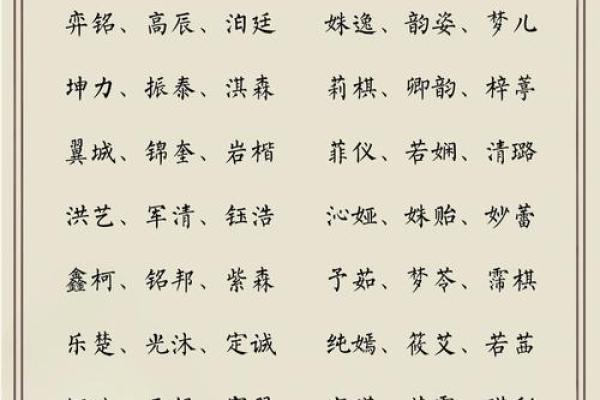 弈铭、高辰、泊廷 姝逸、韵姿、梦儿
坤力、振泰、淇森 莉棋、卿韵、梓葶
翼城、锦奎、岩楷 菲仪、若娴、清璐
洪艺、军清、钰浩 沁娅、姝贻、妙蕾
鑫柯、铭邦、紫森 予茹、梦苓、霈棋
乐楚、光沐、定诚 纯嫣、筱艾、若茁